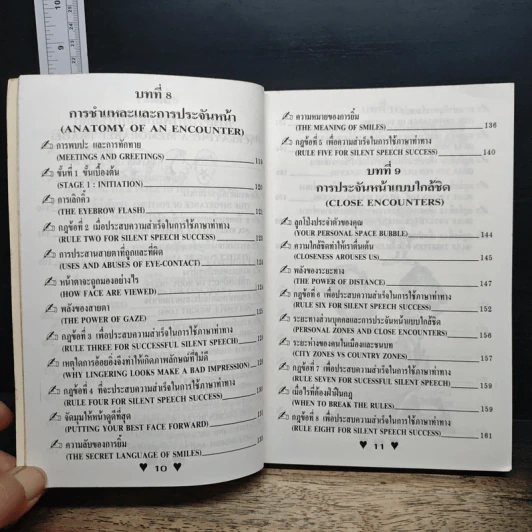 บทที่ 8
การชำแหละและการประจันหน้า
(ANATOMY OF AN ENCOUNTER)
การพบปะ และการทักทาย
(MEETINGS AND GREETINGS)
ขั้นที่ 1 ขั้นเบื้องต้น
(STAGE 1 : INITIATION)
การเลิกคิ้ว
(THE EYEBROW FLASH)
กฎข้อที่ 2 เพื่อประสบความสำเร็จในการใช้ภาษาท่าทาง
(RULE TWO FOR SILENT SPEECH SUCCESS)
การประสานสายตาที่ถูกและที่ผิด
(USES AND ABUSES OF EYE-CONTACT)
หน้าตาจะถูกมองอย่างไร
(HOW FACE ARE VIEWED)
พลังของสายตา
(THE POWER OF GAZE)
กฎข้อที่ 3 เพื่อประสบความสำเร็จในการใช้ภาษาท่าทาง
(RULE THREE FOR SUCCESSFUL SILENT SPEECH)
เหตุใดการอ้อยอิ่งจึงทำให้เกิดภาพลักษณ์ที่ไม่ดี
(WHY LINGERING LOOKS MAKE A BAD IMPRESSION)
กฎข้อที่ 4 ที่จะประสบความสำเร็จในการใช้ภาษาท่าทาง
(RULE FOUR FOR SILENT SPEECH SUCCESS)
จัดมุมให้หน้าดูดีที่สุด
(PUTTING YOUR BEST FACE FORWARD)
ความลับของการยิ้ม
(THE SECRET LANGUAGE OF SMILES)
♥ 10 ♥
ความหมายของการยิ้ม
(THE MEANING OF SMILES) 136
กฎข้อที่ 5 เพื่อความสำเร็จในการใช้ภาษาท่าทาง
(RULE FIVE FOR SILENT SPEECH SUCCESS) 140
บทที่ 9
การประจันหน้าแบบใกล้ชิด
(CLOSE ENCOUNTERS)
ลูกโป่งประจำตัวของคุณ
(YOUR PERSONAL SPACE BUBBLE) 144
ความใกล้ชิดทำให้เราตื่นเต้น
(CLOSENESS AROUSES US) 145
พลังของระยะทาง
(THE POWER OF DISTANCE) 147
กฎข้อที่ 6 เพื่อประสบความสำเร็จในการใช้ภาษาท่าทาง
(RULE SIX FOR SILENT SPEECH SUCCESS) 152
ระยะทางส่วนบุคคลและการประจันหน้าแบบใกล้ชิด
(PERSONAL ZONES AND CLOSE ENCOUNTERS) 156
ระยะห่างของคนในเมืองและชนบท
(CITY ZONES VS COUNTRY ZONES) 157
กฎข้อที่ 7 เพื่อประสบความสำเร็จในการใช้ภาษาท่าทาง
(RULE SEVEN FOR SUCESSFUL SILENT SPEECH) 159
เมื่อไรที่ต้องฝ่าฝืนกฎ
(WHEN TO BREAK THE RULES) 159
กฎข้อที่ 8 เพื่อประสบความสำเร็จในการใช้ภาษาท่าทาง
(RULE EIGHT FOR SILENT SPEECH SUCCESS) 161
♥ 11 ♥